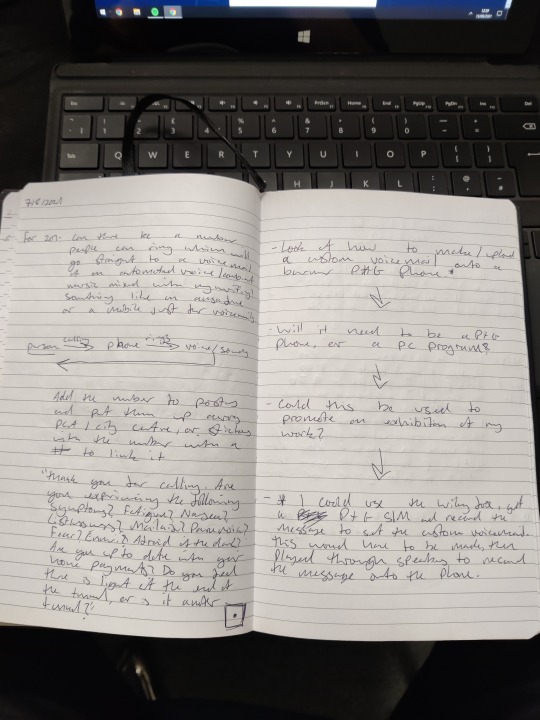 7/8/2021
For 201: Can there be a number
people can ring which will
go straight to a voicemail
of an automated voice/
music mixed with my writing?
Something like an
or a mobile just for voicemails
person calling → phone rings → voice/sounds
Add the number to posters
and put them up around
PCA / city centre, or stickers
with the number with a
# to link it
"Thank you for calling. Are
you experiencing the following
symptoms? Fatigue? Nausea?
Listlessness? Malaise? Paranoia?
Fear? Ennui? Afraid of the dark?
Are you up to date with your
home payments? Do you feel
there is light at the end of
the tunnel, or is it another
tunnel?"
- Look at how to make/upload
a custom voicemail onto a
burner P+G Phone *
- Will it need to be a P+G
phone, or a PC program?
- Could this be used to
promote an exhibition of my
work?
- * I could use the, get
a P+G SIM and record the
message to set the custom voicemail.
This would have to be made, then
played through speakers to record
the message onto the phone.
Esc
PrtScn
Home
End
PgUp
PgDn
Ins
Del
Tab
Q W E R T Y U I O P
H J K L